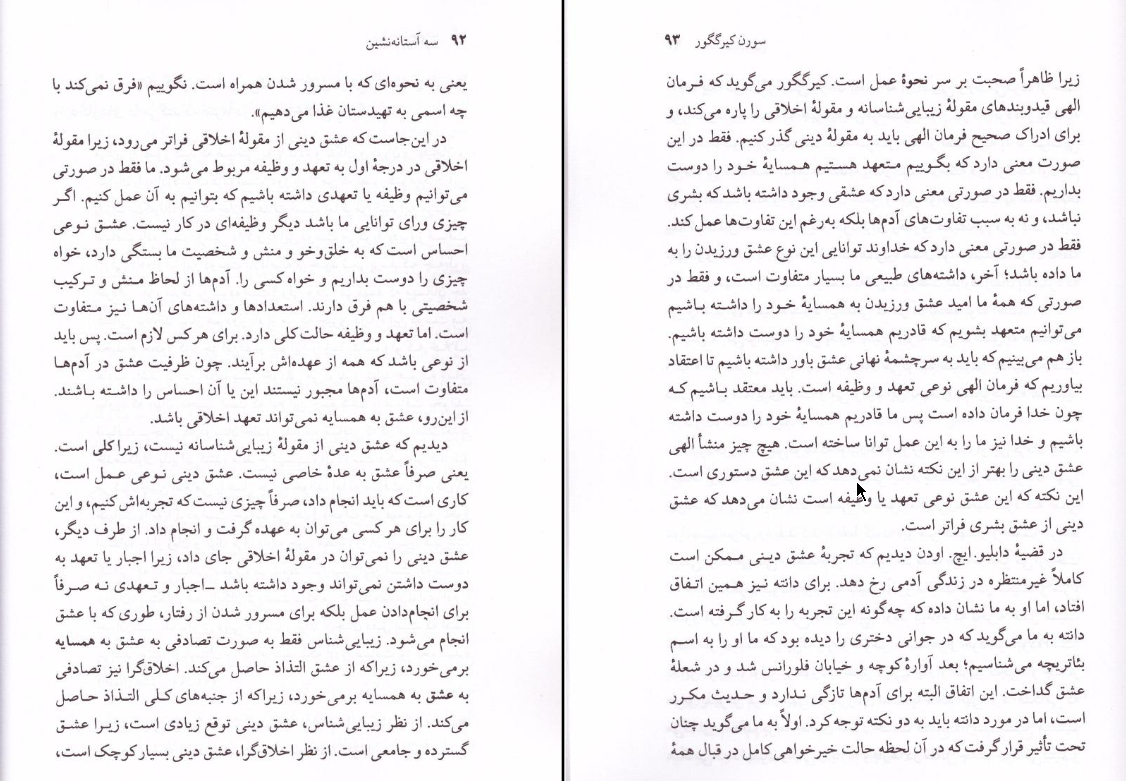 ۹۲ سه آستانه‌نشین
یعنی به نحوه‌ای که با مسرور شدن همراه است. نگوییم «فرق نمی‌کند با
چه اسمی به تهیدستان غذا می‌دهیم».
در این‌جاست که عشق دینی از مقولهٔ اخلاقی فراتر می‌رود، زیرا مقولهٔ
اخلاقی در درجهٔ اول به تعهد و وظیفه مربوط می‌شود. ما فقط در صورتی
می‌توانیم وظیفه یا تعهدی داشته باشیم که بتوانیم به آن عمل کنیم. اگر
چیزی ورای توانایی ما باشد دیگر وظیفه‌ای در کار نیست. عشق نوعی
احساس است که به خلق‌وخو و منش و شخصیت ما بستگی دارد، خواه
چیزی را دوست بداریم و خواه کسی را. آدم‌ها از لحاظ منش و ترکیب
شخصیتی با هم فرق دارند. استعدادها و داشته‌های آن‌ها نیز متفاوت
است. اما تعهد و وظیفه حالت کلی دارد. برای هر کس لازم است. پس باید
از نوعی باشد که همه از عهده‌اش برآیند. چون ظرفیت عشق در آدم‌ها
متفاوت است، آدم‌ها مجبور نیستند این یا آن احساس را داشته باشند.
از این‌رو، عشق به همسایه نمی‌تواند تعهد اخلاقی باشد.
دیدیم که عشق دینی از مقولهٔ زیبایی‌شناسانه نیست، زیرا کلی است.
یعنی صرفاً عشق به عدهٔ خاصی نیست. عشق دینی نوعی عمل است،
کاری است که باید انجام داد، صرفاً چیزی نیست که تجربه‌اش کنیم، و این
کار را برای هر کسی می‌توان به عهده گرفت و انجام داد. از طرف دیگر،
عشق دینی را نمی‌توان در مقولهٔ اخلاقی جای داد، زیرا اجبار یا تعهد به
دوست داشتن نمی‌تواند وجود داشته باشد ـ اجبار و تعهدی نه صرفاً
برای انجام‌دادن عمل بلکه برای مسرور شدن از رفتار، طوری که با عشق
انجام می‌شود. زیبایی‌شناس فقط به صورت تصادفی به عشق به همسایه
برمی‌خورد، زیرا که از عشق التذاذ حاصل می‌کند. اخلاق‌گرا نیز تصادفی
به عشق به همسایه برمی‌خورد، زیرا که از جنبه‌های کلی التذاذ حاصل
می‌کند. از نظر زیبایی‌شناس، عشق دینی توقع زیادی است، زیرا عشق
گسترده و جامعی است. از نظر اخلاق‌گرا، عشق دینی بسیار کوچک است،
سورن کیرگگور ۹۳
زیرا ظاهراً صحبت بر سر نحوهٔ عمل است. کیرگگور می‌گوید که فرمان
الهی قیدوبندهای مقولهٔ زیبایی‌شناسانه و مقولهٔ اخلاقی را پاره می‌کند، و
برای ادراک صحیح فرمان الهی باید به مقولهٔ دینی گذر کنیم. فقط در این
صورت معنی دارد که بگوییم متعهد هستیم همسایهٔ خود را دوست
بداریم. فقط در صورتی معنی دارد که عشقی وجود داشته باشد که بشری
نباشد، و نه به سبب تفاوت‌های آدم‌ها بلکه به‌رغم این تفاوت‌ها عمل کند.
فقط در صورتی معنی دارد که خداوند توانایی این نوع عشق ورزیدن را به
ما داده باشد؛ آخر، داشته‌های طبیعی ما بسیار متفاوت است، و فقط در
صورتی که همهٔ ما امید عشق ورزیدن به همسایهٔ خود را داشته باشیم
می‌توانیم متعهد بشویم که قادریم همسایهٔ خود را دوست داشته باشیم.
باز هم می‌بینیم که باید به سرچشمهٔ نهانی عشق باور داشته باشیم تا اعتقاد
بیاوریم که فرمان الهی نوعی تعهد و وظیفه است. باید معتقد باشیم که
چون خدا فرمان داده است پس ما قادریم همسایهٔ خود را دوست داشته
باشیم و خدا نیز ما را به این عمل توانا ساخته است. هیچ چیز منشأ الهی
عشق دینی را بهتر از این نکته نشان نمی‌دهد که این عشق دستوری است.
این نکته که این عشق نوعی تعهد یا وظیفه است نشان می‌دهد که عشق
دینی از عشق بشری فراتر است.
در قضیهٔ دابلیو. ایچ. اودن دیدیم که تجربهٔ عشق دینی ممکن است
کاملاً غیرمنتظره در زندگی آدمی رخ دهد. برای دانته نیز همین اتفاق
افتاد، اما او به ما نشان داده که چه‌گونه این تجربه را به کار گرفته است.
دانته به ما می‌گوید که در جوانی دختری را دیده بود که ما او را به اسم
بئاتریچه می‌شناسیم؛ بعد آوارهٔ کوچه و خیابان فلورانس شد و در شعلهٔ
عشق گداخت. این اتفاق البته برای آدم‌ها تازگی ندارد و حدیث مکرر
است، اما در مورد دانته باید به دو نکته توجه کرد. اولاً به ما می‌گوید چنان
تحت تأثیر قرار گرفت که در آن لحظه حالت خیرخواهی کامل در قبال همهٔ